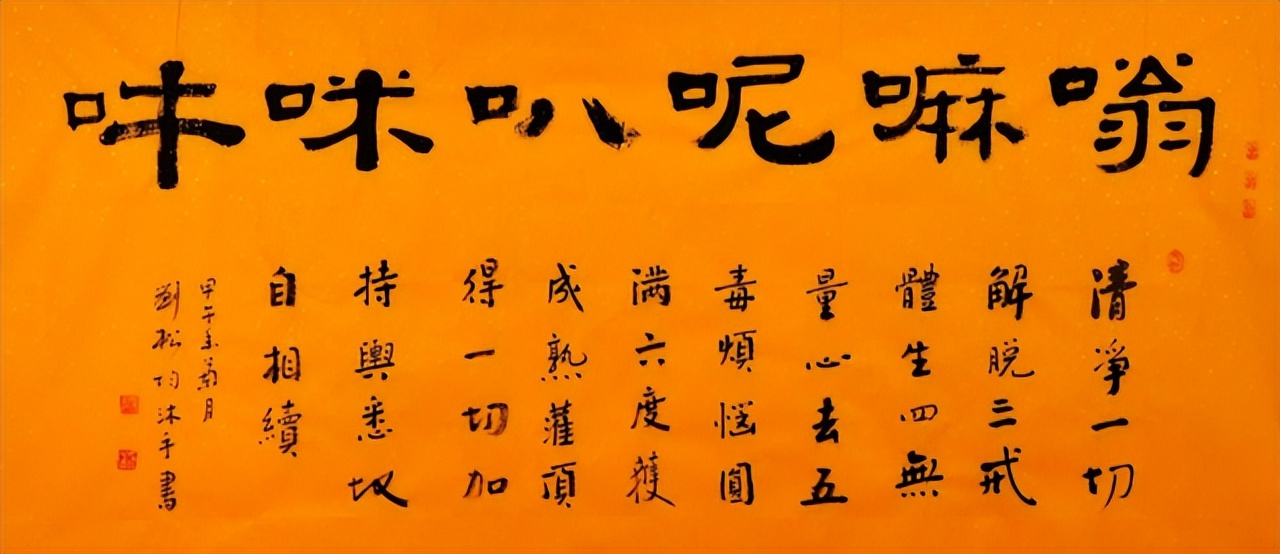 嗡嘛呢叭咪吽
清淨一切
解脱三戒
體生四無
量心去五
毒煩惱圓
满六度獲
成熟灌頂
得一切加
持與悉地
自相續
甲午年菊月
劉松均沐手書